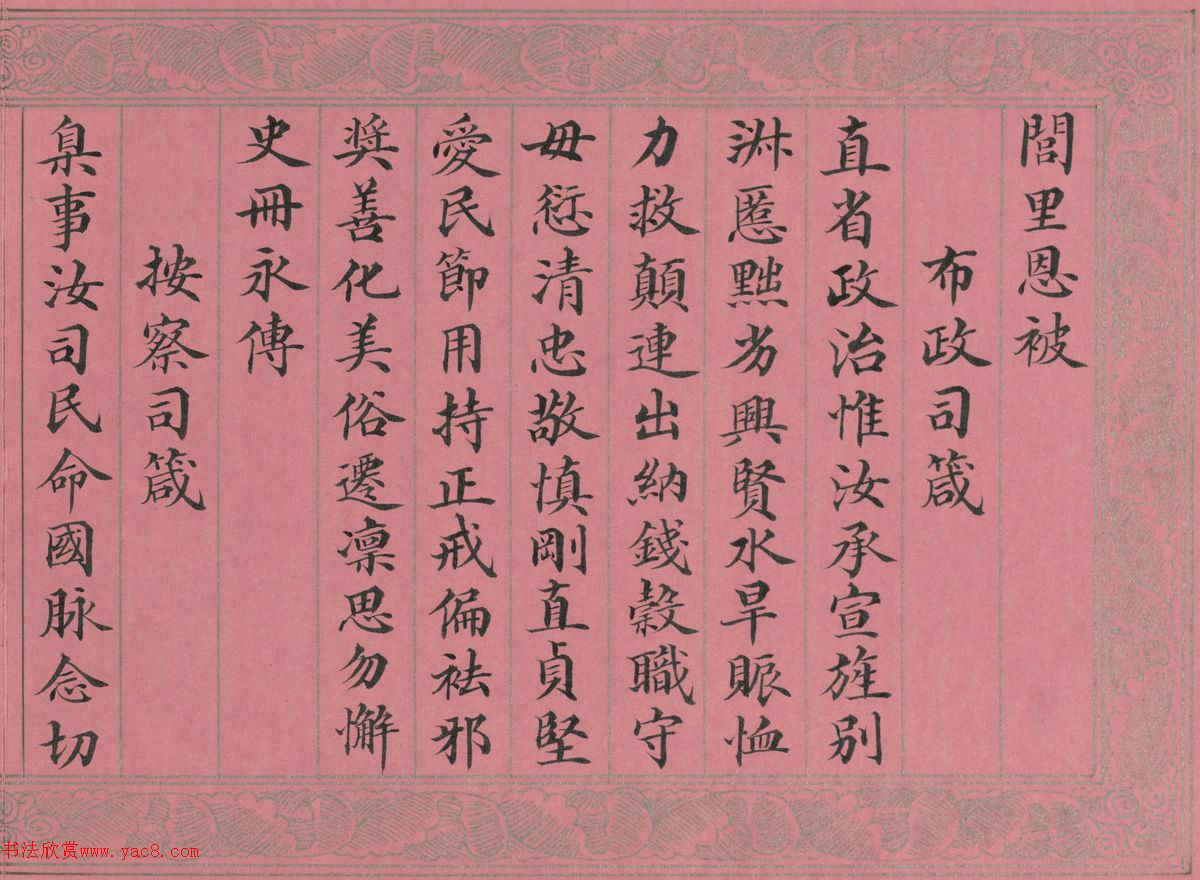 閭里恩被
布政司箴
直省政治惟汝承宣旌別
淋慝黜劣興賢水旱賑恤
力救顛連出納錢穀職守
毋愆清忠敬慎剛直貞堅
愛民節用持正戒偏袪邪
奨善化美俗遷凛思勿懈
史冊永傳
按察司箴
臬事汝司民命國脉念切
书法欣赏www.yac8.com